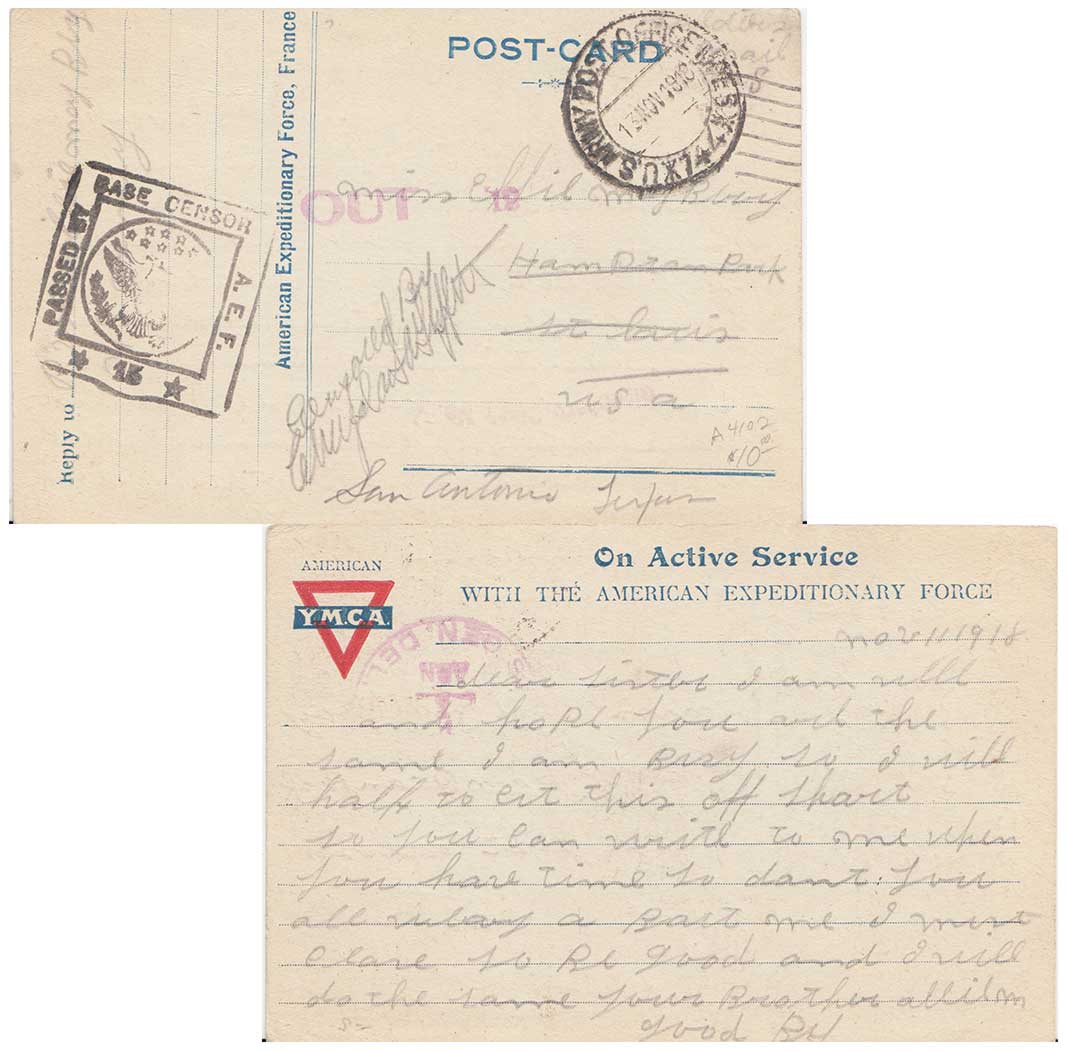 POST-CARD
American Expeditionary Force, France
Reply to
U.S. ARMY POST OFFICE M.P.E.S.
13 NOV 1918
PASSED BY
BASE CENSOR
A.E.F.
★ 15 ★
OUT
Miss
St Louis
USA
Censored By
A4102
$10.00
San Antonio Texas
AMERICAN
Y.M.C.A.
On Active Service
WITH THE AMERICAN EXPEDITIONARY FORCE
GEN. DEL.
JAN
Nov 11 1918
dear sister I am well
and hope you the
same I am Bisy so I will
half to cit this off short
so you can write to me when
you have time so dant you
all a Bout me I must
close so Be good and I will
do the same your Brother
good By